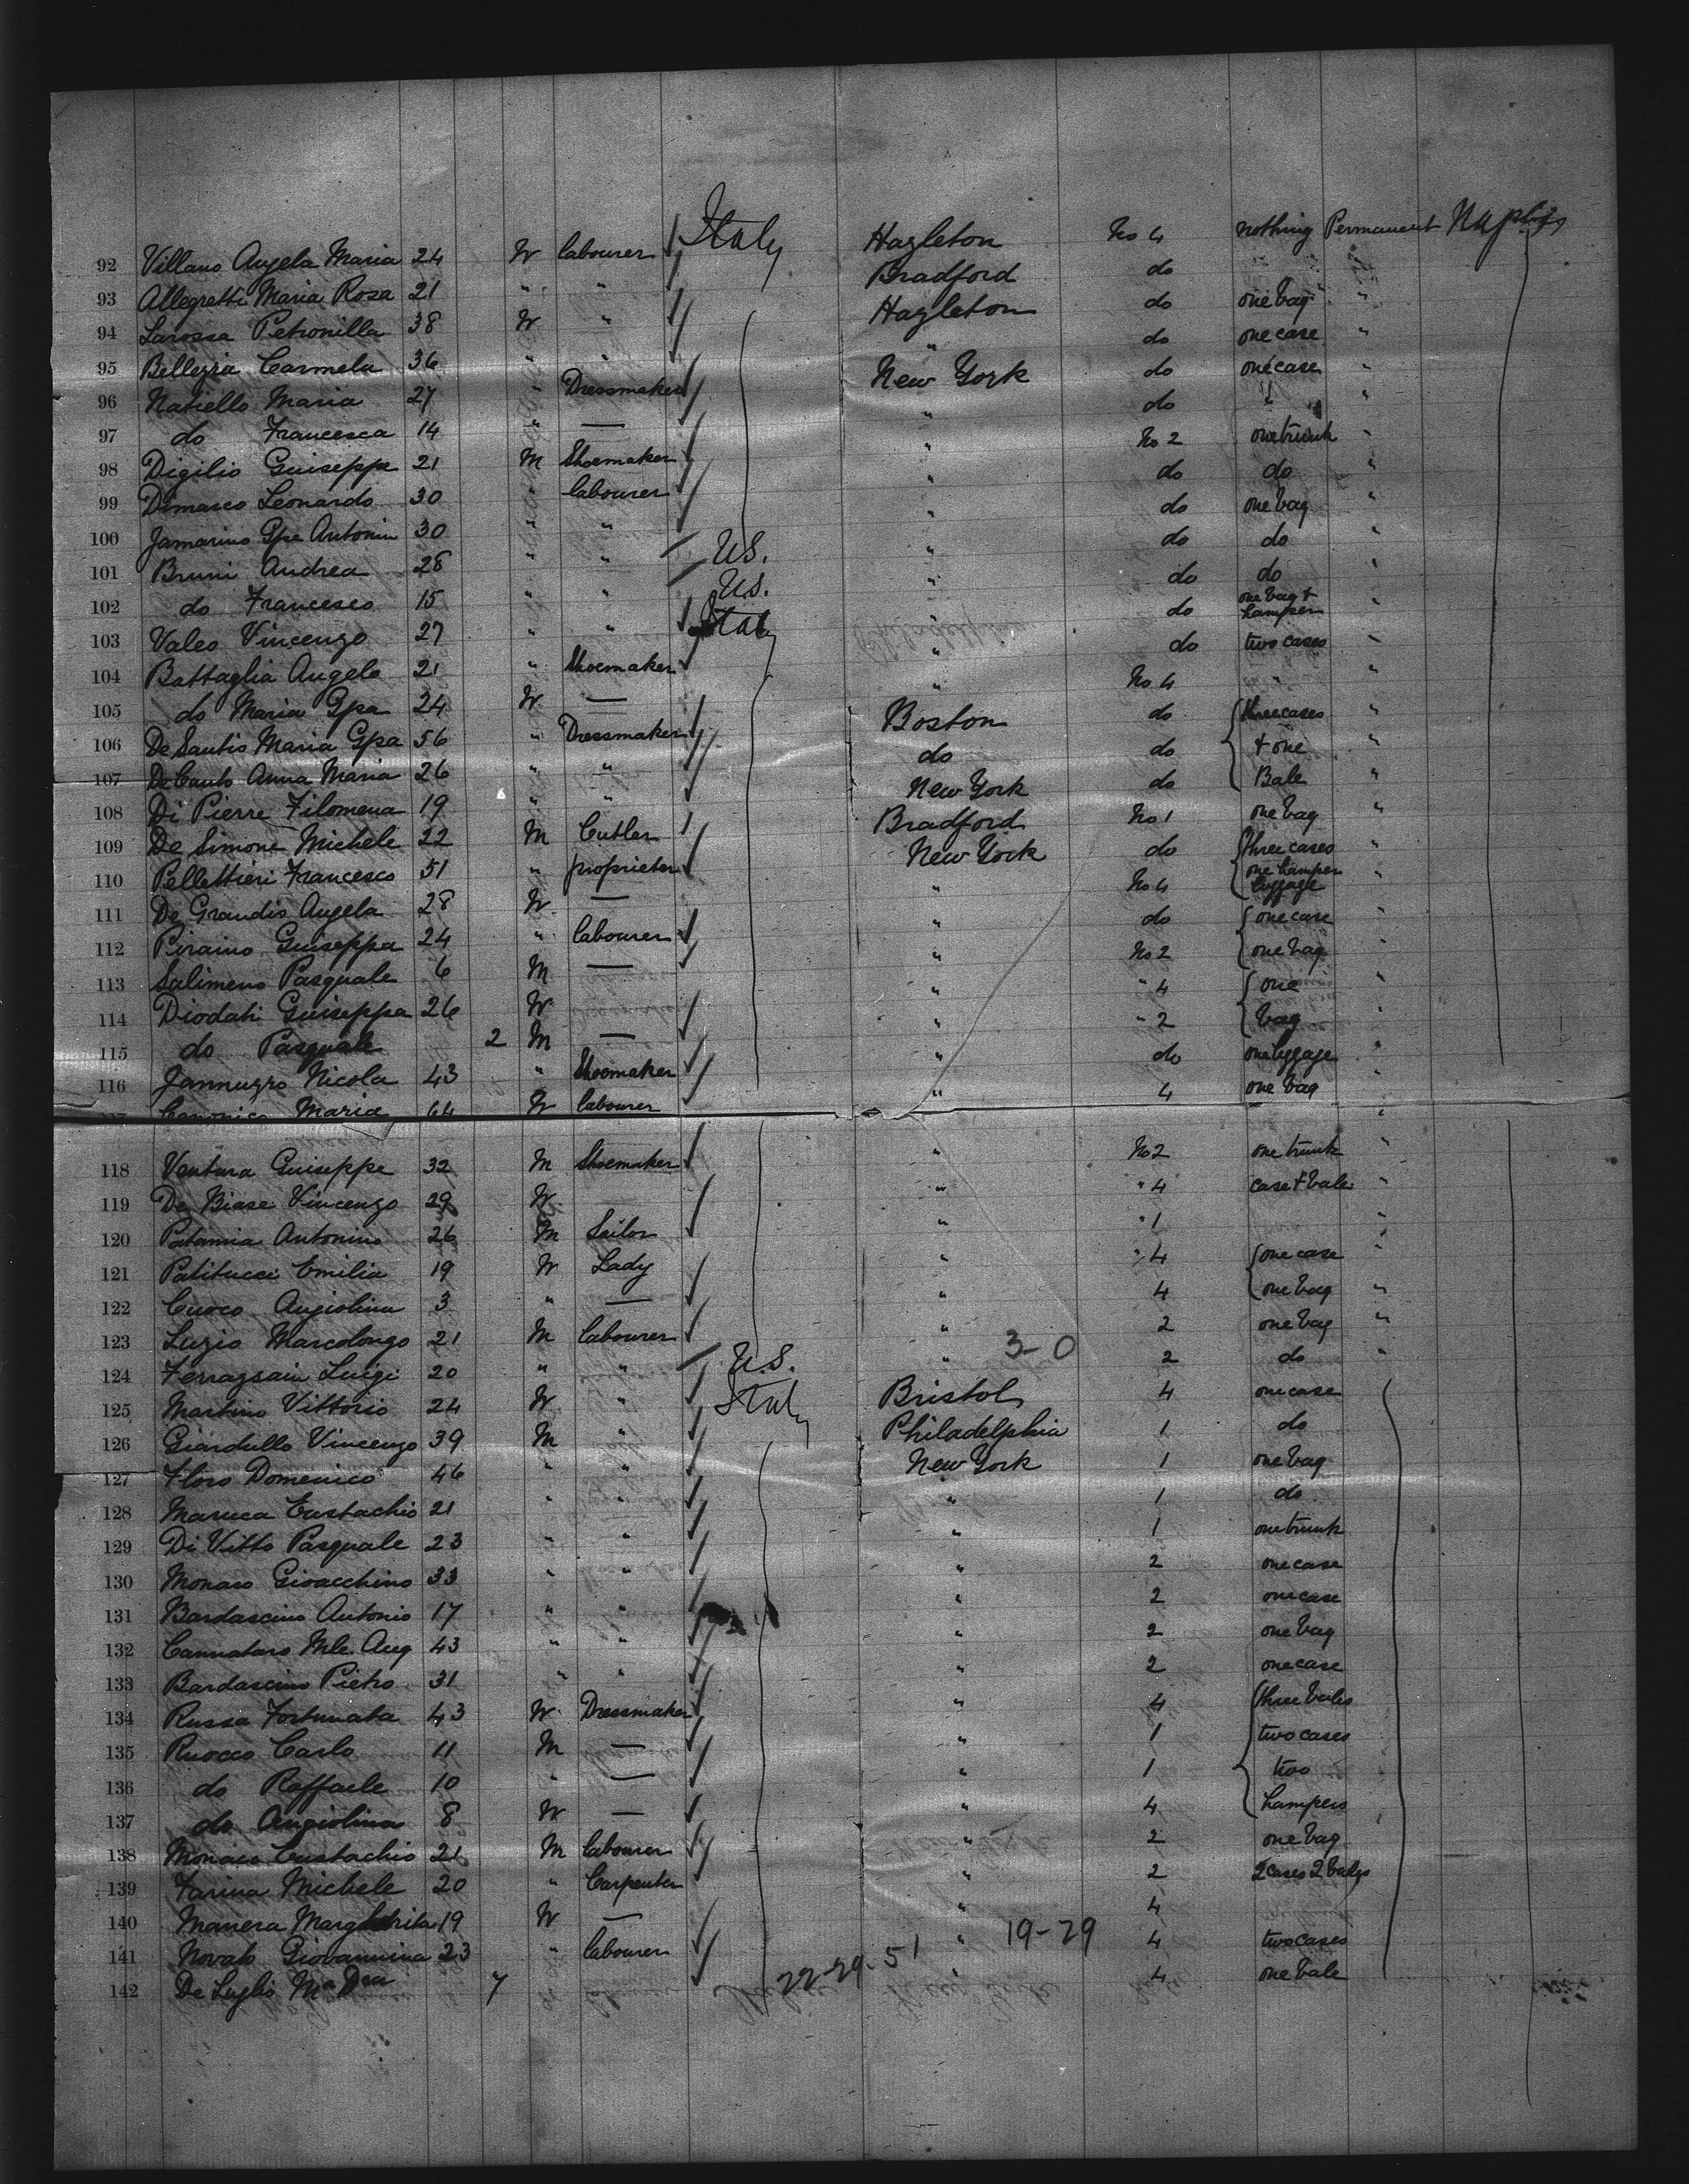 92 Villano Angela Maria 24 W labourer Italy Hazleton No 4 nothing Permanent Naples
93 Allegretti Maria Rosa 21 " " Bradford do "
94 Larossa Petronilla 38 W " Hazleton do one bag "
95 Bellezza Carmela 36 " " " do one case "
96 Natiello Maria 27 Dressmaker New York do one case "
97 do Francesca 14 " — " do " "
98 Digilio Guiseppe 21 M Shoemaker " No 2 one trunk "
99 Dimarco Leonardo 30 labourer " do do "
100 Jamarino Gpe Antonin 30 " " " do one bag "
101 Bruni Andrea 28 " " U.S. " do do "
102 do Francesco 15 " " U.S. " do do "
103 Valeo Vincenzo 27 " " Italy " do one bag & hamper "
104 Battaglia Angelo 21 " Shoemaker " do two cases "
105 do Maria Gpa 24 W — " No 4 " "
106 De Santis Maria Gpa 56 " Dressmaker Boston do three cases "
107 De Carlo Anna Maria 26 " " do do & one "
108 Di Pierre Filomena 19 " " New York do Bale "
109 De Simone Michele 22 M Cutler Bradford No 1 one bag "
110 Pellettieri Francesco 51 " proprieter New York do three cases "
111 De Grandis Angela 28 W — " No 4 one hamper luggage
112 Piraino Guiseppa 24 " labourer " do one case "
113 Salimeno Pasquale 6 M — " No 2 one bag
114 Diodati Guiseppa 26 W " " 4 one "
115 do Pasquale 2 M — " " 2 bag "
116 Jannuzzo Nicola 43 " Shoemaker " do one luggage "
Canonico Maria 64 W labourer " 4 one bag "
118 Ventura Guiseppe 32 M Shoemaker " No 2 one trunk "
119 De Biase Vincenzo 29 W — " " 4 case & bale "
120 Patamia Antonino 26 M Sailor " " 1 "
121 Patitucci Emilia 19 W Lady " " 4 one case "
122 Cuoco Angiolina 3 " — " 4 one bag "
123 Luzio Marcolongo 21 M labourer " 3-0 2 one bag "
124 Ferragsain Luigi 20 " " U.S. " 2 do "
125 Martino Vittorio 24 W " Italy Bristol 4 one case
126 Giardullo Vincenzo 39 M " Philadelphia 1 do
127 Floro Domenico 46 " " New York 1 one bag
128 Maruca Eustachio 21 " " " 1 do
129 Di Vitto Pasquale 23 " " " 1 one trunk
130 Monaco Gioacchino 33 " " " 2 one case
131 Bardascino Antonio 17 " " " 2 one case
132 Cannataro Mle. Aug 43 " " " 2 one bag
133 Bardascino Pietro 31 " " " 2 one case
134 Russa Fortunata 43 W Dressmaker " 4 three bales
135 Ruocco Carlo 11 M — " 1 two cases
136 do Raffaele 10 " — " 1 two
137 do Angiolina 8 W — " 4 hampers
138 Monaco Eustachio 21 M labourer " 2 one bag
139 Farina Michele 20 " Carpenter " 2 2 cases 2 bales
140 Manera Margherita 19 W — " 4
141 Novato Giovannina 23 " labourer " 19-29 4 two cases
142 De Luglio Ma Dca 7 22-29-51 " 4 one bale